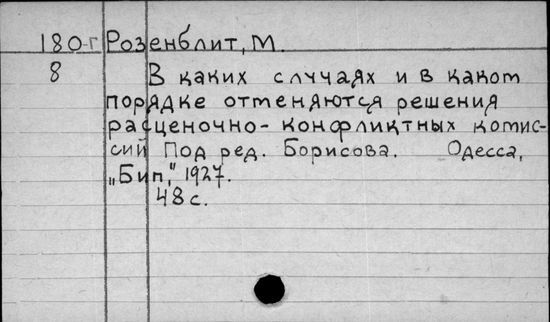 180-г Розенблит, М.
8 В каких случаях и в каком
порядке отменяются решения
расценочно-конфликтных комис-
сий Под ред. Борисова. Одесса,
„Бип," 1927.
48 с.